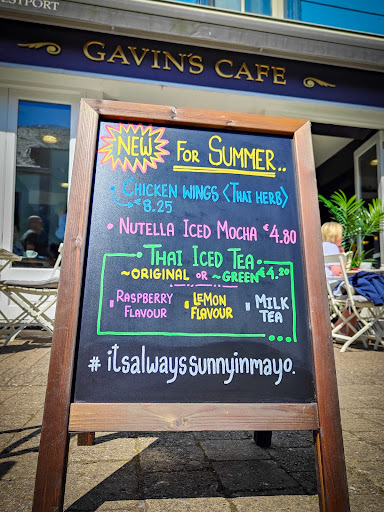 WESTPORT
GAVIN'S CAFE
NEW FOR SUMMER..
• CHICKEN WINGS <THAI HERB>
€8.25
• NUTELLA ICED MOCHA €4.80
THAI ICED TEA
~ORIGINAL OR ~GREEN €4.20
RASPBERRY FLAVOUR
LEMON FLAVOUR
MILK TEA
# itsalwayssunnyinmayo.